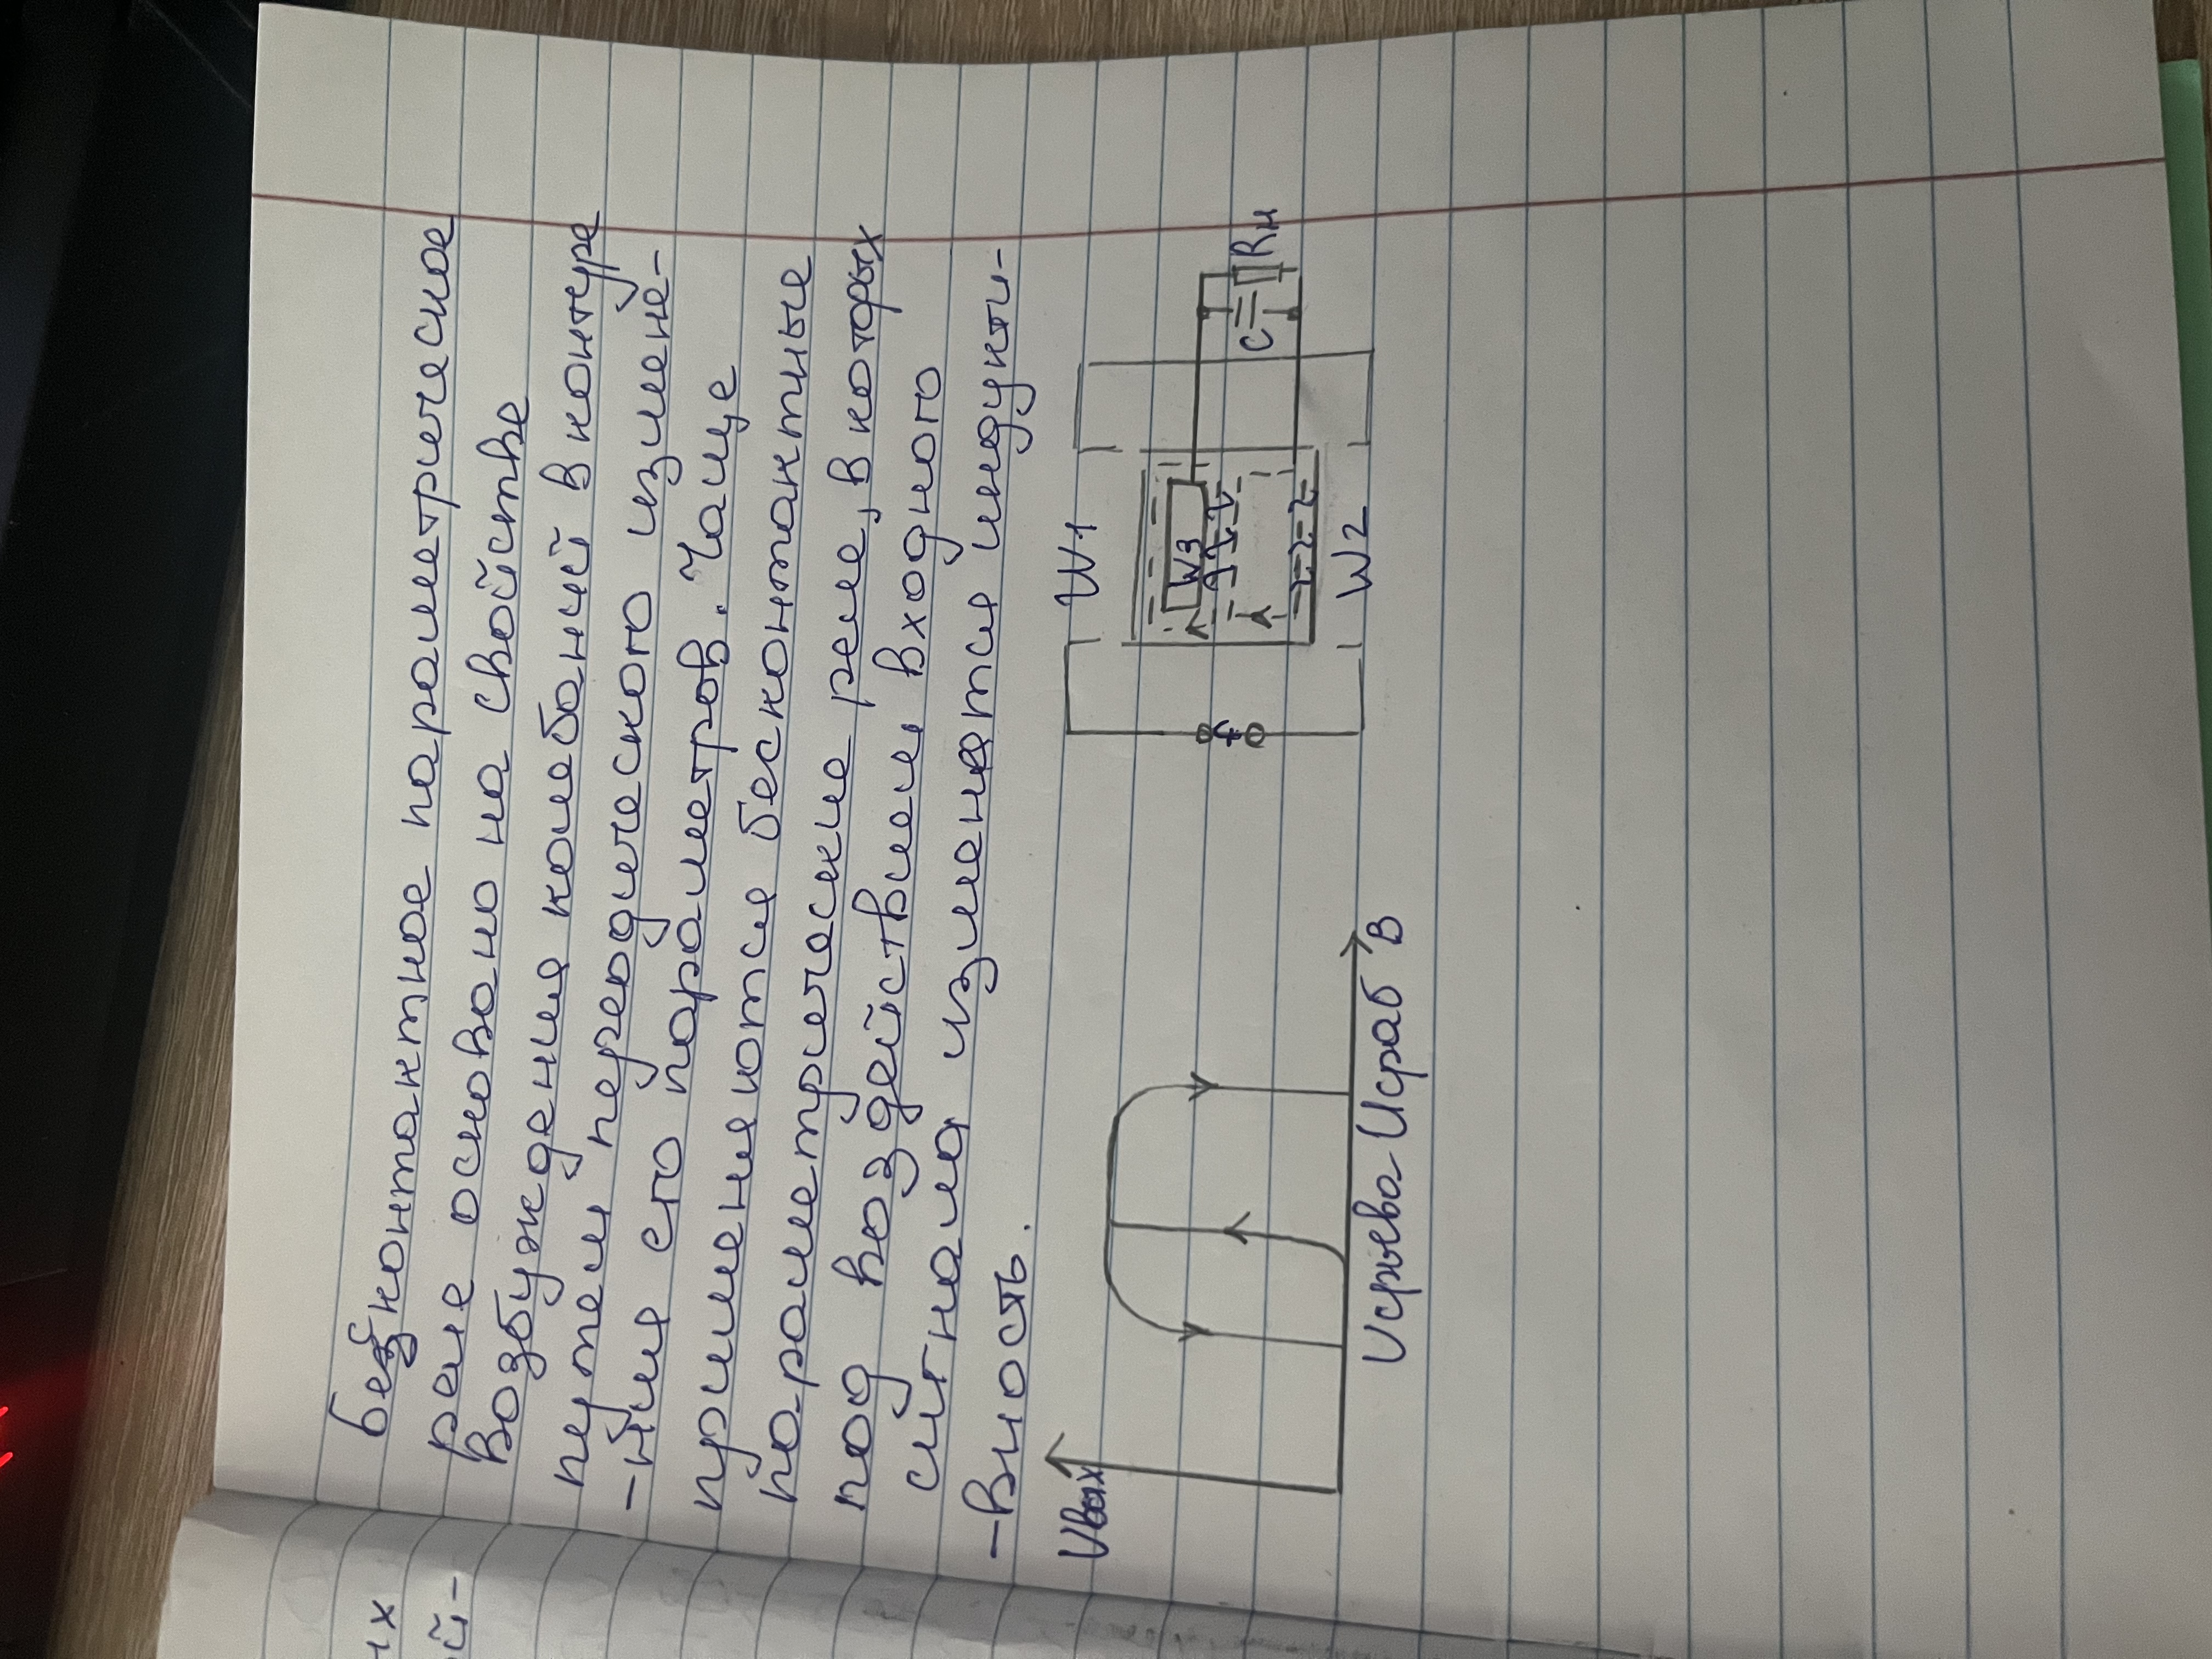 бесконтактное параметрическое
реле основано на свойстве
возбуждения колебаний в контуре
путем переодического измене-
-ния его параметров. Чаще
применяются бесконтактные
параметрические реле, в которых
под воздействием входного
сигнала изменяется индукти-
-вность.
Uвых
Uсрыва Uсраб В
W1
W3
W2
f
C
Rн
их
ой-